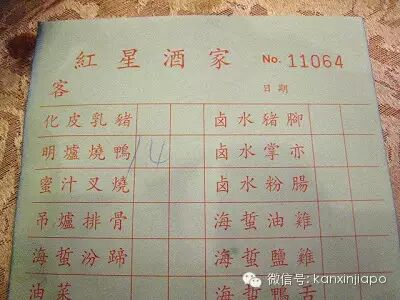 紅星酒家 No. 11064
客 日期
化皮乳豬 卤水豬腳
明爐燒鴨 14 卤水掌亦
蜜汁叉燒 卤水粉腸
吊爐排骨 海蜇油雞
海蜇汾蹄 海蜇鹽雞
油菜 海蜇鴨舌
微信号: kanxinjiapo